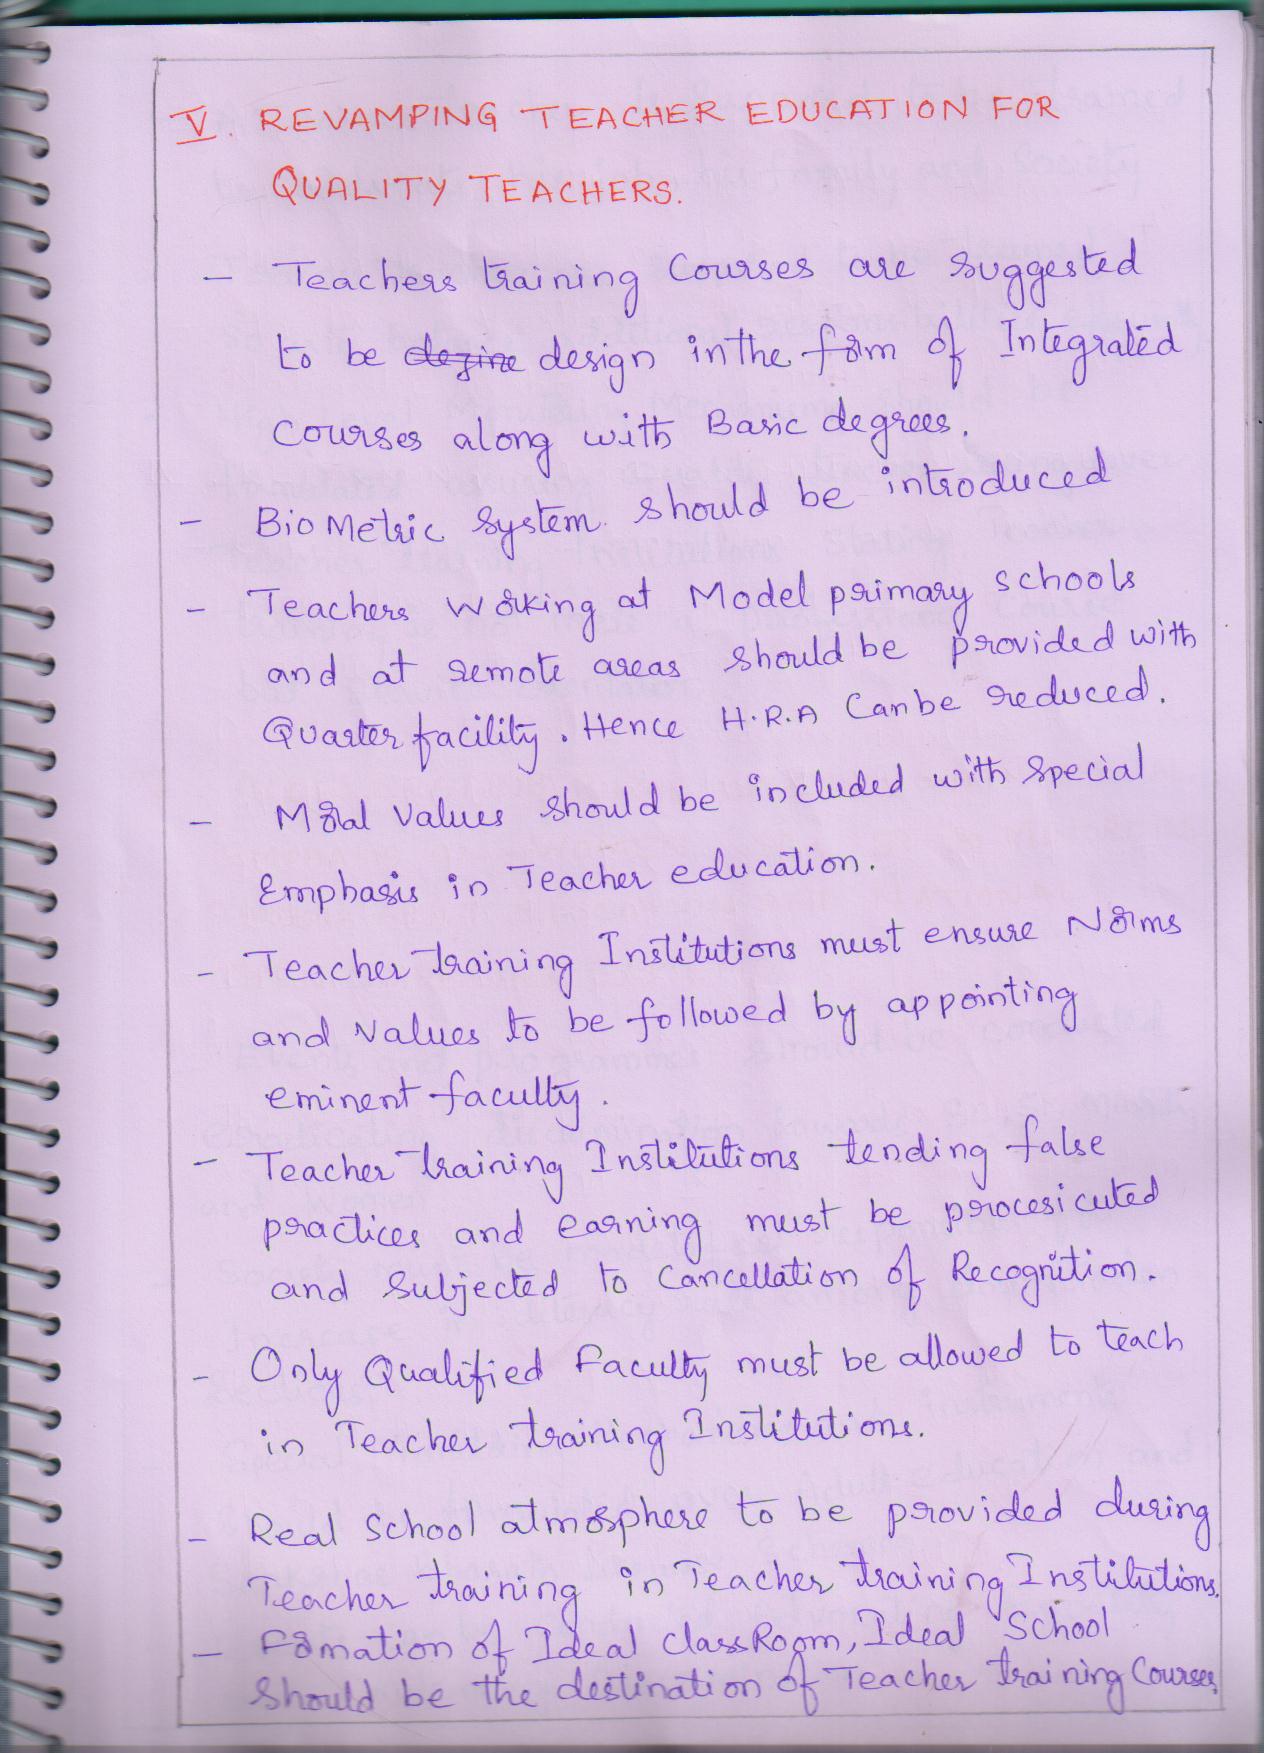 V. REVAMPING TEACHER EDUCATION FOR
QUALITY TEACHERS.
- Teachers training Courses are suggested
to be dezine design in the form of Integrated
courses along with Basic degrees.
- Bio Metric System should be introduced
- Teachers Working at Model primary schools
and at remote areas should be provided with
Quarter facility. Hence H.R.A Can be reduced.
- Moral Values should be included with special
Emphasis in Teacher education.
- Teacher training Institutions must ensure Norms
and Values to be followed by appointing
eminent faculty.
- Teacher training Institutions tending false
practices and earning must be procesicuted
and Subjected to Cancellation of Recognition.
- Only Qualified Faculty must be allowed to teach
in Teacher training Institutions.
- Real School atmosphere to be provided during
Teacher training in Teacher training Institutions.
- Fomation of Ideal Class Room, Ideal School
Should be the destination of Teacher training Courses.